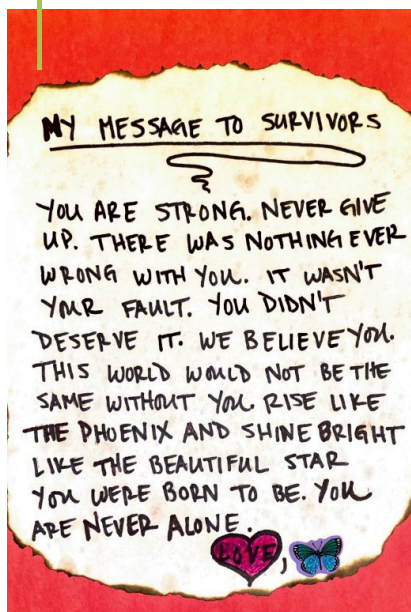 MY MESSAGE TO SURVIVORS
YOU ARE STRONG. NEVER GIVE
UP. THERE WAS NOTHING EVER
WRONG WITH YOU. IT WASN'T
YOUR FAULT. YOU DIDN'T
DESERVE IT. WE BELIEVE YOU.
THIS WORLD WOULD NOT BE THE
SAME WITHOUT YOU. RISE LIKE
THE PHOENIX AND SHINE BRIGHT
LIKE THE BEAUTIFUL STAR
YOU WERE BORN TO BE. YOU
ARE NEVER ALONE.
LOVE,